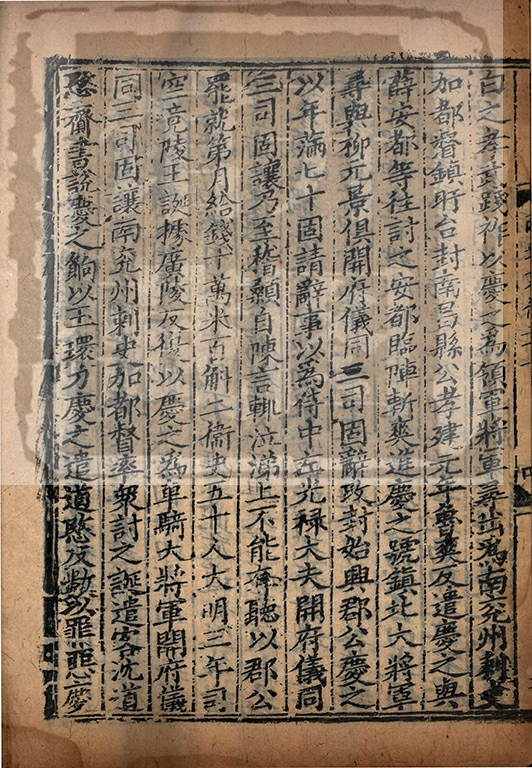 白之孝武踐祚以慶之爲領軍將軍尋出爲南兖州刺史
加都督鎮盱台封南昌縣公孝建元年魯爽反遣慶之與
薛安都等往討之安都臨陣斬爽進慶之號鎮北大將軍
尋與柳元景俱開府儀同三司固辭改封始興郡公慶之
以年滿七十固請辭事以爲侍中左光禄大夫開府儀同
三司固讓乃至稽顙自陳言輒泣涕上不能奪聽以郡公
罷就第月給錢十萬米百斛二衞史五十人大明三年司
空竟陵王誕據廣陵反復以慶之爲車騎大將軍開府儀
同三司固讓南兖州刺史加都督率衆討之誕遣客沈道
愍齎書說慶之餉以玉環刀慶之遣道愍反數以罪惡慶